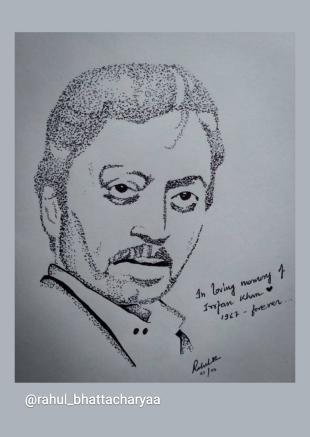 In loving memory of
Irrfan Khan ♥
1967 - forever...
@rahul_bhattacharyaa